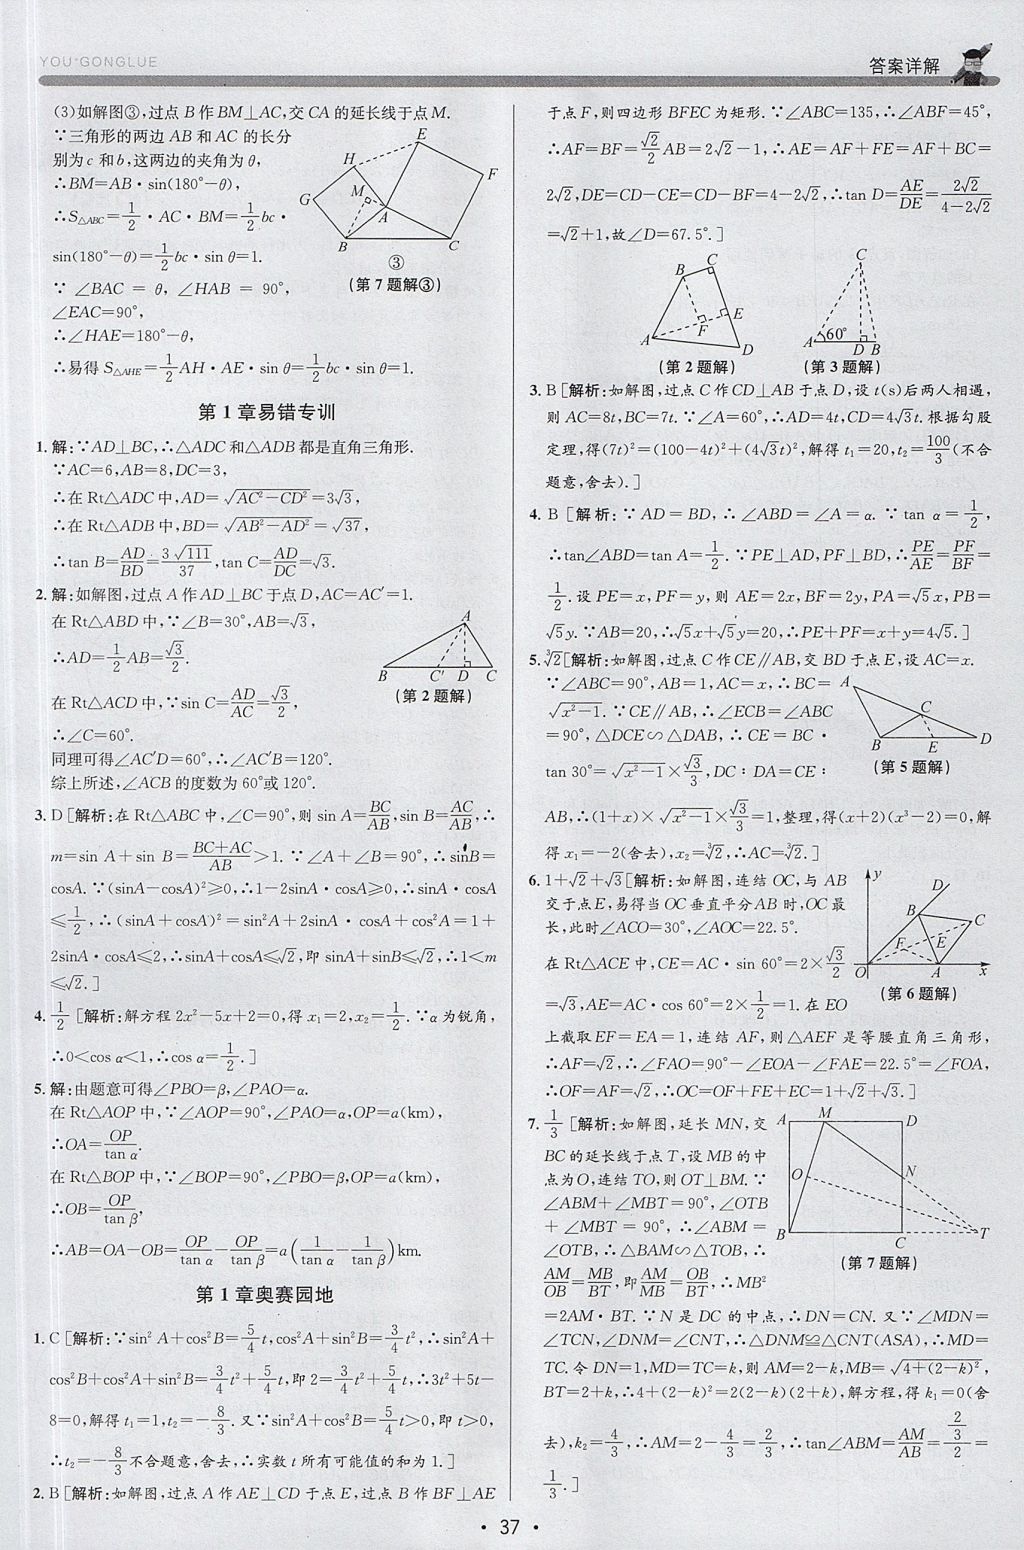 YOU+GONGLUE
答案详解
(3)如解图③,过点B作BM⊥AC,交CA的延长线于点M.
∵三角形的两边AB和AC的长分
别为c和b,这两边的夹角为θ,
∴BM=AB·sin(180°-θ),
∴S△ABC=1/2·AC·BM=1/2bc·
sin(180°-θ)=1/2bc·sin θ=1.
∵∠BAC=θ,∠HAB=90°,
∠EAC=90°,
∴∠HAE=180°-θ,
∴易得S△AHE=1/2AH·AE·sin θ=1/2bc·sin θ=1.
E
H
F
M
G
A
B
C
③
(第7题解③)
第1章易错专训
1. 解:∵AD⊥BC,∴△ADC和△ADB都是直角三角形.
∵AC=6,AB=8,DC=3,
∴在Rt△ADC中,AD=√(AC²-CD²)=3√3,
∴在Rt△ADB中,BD=√(AB²-AD²)=√37,
∴tan B=AD/BD=3√111/37,tan C=AD/DC=√3.
2. 解:如解图,过点A作AD⊥BC于点D,AC=AC′=1.
在Rt△ABD中,∵∠B=30°,AB=√3,
∴AD=1/2AB=√3/2.
在Rt△ACD中,∵sin C=AD/AC=√3/2,
∴∠C=60°.
同理可得∠AC′D=60°,∴∠AC′B=120°.
综上所述,∠ACB的度数为60°或120°.
A
B C′ D C
(第2题解)
3. D [解析:在Rt△ABC中,∠C=90°,则sin A=BC/AB,sin B=AC/AB,∴
m=sin A+sin B=(BC+AC)/AB>1.∵∠A+∠B=90°,∴sinB=
cosA.∵(sinA-cosA)²≥0,∴1-2sinA·cosA≥0,∴sinA·cosA
≤1/2,∴(sinA+cosA)²=sin²A+2sinA·cosA+cos²A=1+
2sinA·cosA≤2,∴sinA+cosA≤√2,即sinA+sinB≤√2,∴1<m
≤√2.]
4. 1/2 [解析:解方程2x²-5x+2=0,得x₁=2,x₂=1/2.∵α为锐角,
∴0<cos α<1,∴cos α=1/2.]
5. 解:由题意可得∠PBO=β,∠PAO=α.
在Rt△AOP中,∵∠AOP=90°,∠PAO=α,OP=a(km),
∴OA=OP/tan α.
在Rt△BOP中,∵∠BOP=90°,∠PBO=β,OP=a(km),
∴OB=OP/tan β,
∴AB=OA-OB=OP/tan α-OP/tan β=a(1/tan α-1/tan β)km.
第1章奥赛园地
1. C [解析:∵sin²A+cos²B=5/4t,cos²A+sin²B=3/4t²,∴sin²A+
cos²B+cos²A+sin²B=3/4t²+5/4t,即2=3/4t²+5/4t,∴3t²+5t-
8=0,解得t₁=1,t₂=-8/3.又∵sin²A+cos²B=5/4t>0,即t>0,
∴t₂=-8/3不合题意,舍去,∴实数t所有可能值的和为1.]
2. B [解析:如解图,过点A作AE⊥CD于点E,过点B作BF⊥AE
于点F,则四边形BFEC为矩形.∵∠ABC=135,∴∠ABF=45°,
∴AF=BF=√2/2AB=2√2-1,∴AE=AF+FE=AF+BC=
2√2,DE=CD-CE=CD-BF=4-2√2,∴tan D=AE/DE=2√2/(4-2√2)
=√2+1,故∠D=67.5°.]
C
B
E
F
A
D
(第2题解)
C
60°
A D B
(第3题解)
3. B [解析:如解图,过点C作CD⊥AB于点D,设t(s)后两人相遇,
则AC=8t,BC=7t.∵∠A=60°,∴AD=4t,CD=4√3t.根据勾股
定理,得(7t)²=(100-4t)²+(4√3t)²,解得t₁=20,t₂=100/3(不合
题意,舍去).]
4. B [解析:∵AD=BD,∴∠ABD=∠A=α.∵tan α=1/2,
∴tan∠ABD=tan A=1/2.∵PE⊥AD,PF⊥BD,∴PE/AE=PF/BF=
1/2.设PE=x,PF=y,则AE=2x,BF=2y,PA=√5x,PB=
√5y.∵AB=20,∴√5x+√5y=20,∴PE+PF=x+y=4√5.]
5. ∛2[解析:如解图,过点C作CE∥AB,交BD于点E,设AC=x.
∵∠ABC=90°,AB=1,AC=x,∴BC=
√(x²-1).∵CE∥AB,∴∠ECB=∠ABC
=90°,△DCE∽△DAB,∴CE=BC·
tan 30°=√(x²-1)×√3/3,DC∶DA=CE∶
AB,∴(1+x)×√(x²-1)×√3/3=1,整理,得(x+2)(x³-2)=0,解
得x₁=-2(舍去),x₂=∛2,∴AC=∛2.]
A
C
B E D
(第5题解)
6. 1+√2+√3[解析:如解图,连结OC,与AB
交于点E,易得当OC垂直平分AB时,OC最
长,此时∠ACO=30°,∠AOC=22.5°.
在Rt△ACE中,CE=AC·sin 60°=2×√3/2
=√3,AE=AC·cos 60°=2×1/2=1.在EO
上截取EF=EA=1,连结AF,则△AEF是等腰直角三角形,
∴AF=√2,∴∠FAO=90°-∠EOA-∠FAE=22.5°=∠FOA,
∴OF=AF=√2,∴OC=OF+FE+EC=1+√2+√3.]
y
D
B
C
F E
O A x
(第6题解)
7. 1/3 [解析:如解图,延长MN,交
BC的延长线于点T,设MB的中
点为O,连结TO,则OT⊥BM.∵
∠ABM+∠MBT=90°,∠OTB
+∠MBT=90°,∴∠ABM=
∠OTB,∴△BAM∽△TOB,∴
AM/OB=MB/BT,即AM/MB=OB/BT,∴MB²
=2AM·BT.∵N是DC的中点,∴DN=CN.又∵∠MDN=
∠TCN,∠DNM=∠CNT,∴△DNM≌△CNT(ASA),∴MD=
TC.令DN=1,MD=TC=k,则AM=2-k,MB=√(4+(2-k)²),
BT=2+k,∴4+(2-k)²=2(2-k)(2+k),解方程,得k₁=0(舍
去),k₂=4/3,∴AM=2-4/3=2/3,∴tan∠ABM=AM/AB=(2/3)/2=
1/3.]
A M D
O N
B C T
(第7题解)
· 37 ·